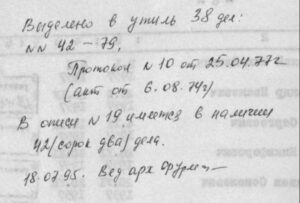 Выделено в утиль 38 дел:
№№ 42 – 79,
Протокол № 10 от 25.04.77г
(акт от 6.08.74г)
В описи № 19 имеется в наличии
42 (сорок два) дела.
18.07.95. Вед арх